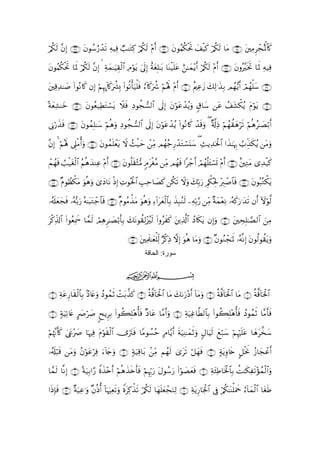 كَٱلْمُجْرِمِينَ مَا لَكُمْ كَيْفَ تَحْكُمُونَ أَمْ لَكُمْ كِتَٰبٌ فِيهِ تَدْرُسُونَ إِنَّ لَكُمْ
فِيهِ لَمَا تَخَيَّرُونَ أَمْ لَكُمْ أَيْمَٰنٌ عَلَيْنَا بَٰلِغَةٌ إِلَىٰ يَوْمِ ٱلْقِيَٰمَةِ إِنَّ لَكُمْ لَمَا تَحْكُمُونَ
سَلْهُمْ أَيُّهُم بِذَٰلِكَ زَعِيمٌ أَمْ لَهُمْ شُرَكَآءُ فَلْيَأْتُوا۟ بِشُرَكَآئِهِمْ إِن كَانُوا۟ صَٰدِقِينَ
يَوْمَ يُكْشَفُ عَن سَاقٍ وَيُدْعَوْنَ إِلَى ٱلسُّجُودِ فَلَا يَسْتَطِيعُونَ خَٰشِعَةً
أَبْصَٰرُهُمْ تَرْهَقُهُمْ ذِلَّةٌ وَقَدْ كَانُوا۟ يُدْعَوْنَ إِلَى ٱلسُّجُودِ وَهُمْ سَٰلِمُونَ فَذَرْنِى
وَمَن يُكَذِّبُ بِهَٰذَا ٱلْحَدِيثِ سَنَسْتَدْرِجُهُم مِّنْ حَيْثُ لَا يَعْلَمُونَ وَأُمْلِى لَهُمْ إِنَّ
كَيْدِى مَتِينٌ أَمْ تَسْـَٔلُهُمْ أَجْرًا فَهُم مِّن مَّغْرَمٍ مُّثْقَلُونَ أَمْ عِندَهُمُ ٱلْغَيْبُ فَهُمْ
يَكْتُبُونَ فَٱصْبِرْ لِحُكْمِ رَبِّكَ وَلَا تَكُن كَصَاحِبِ ٱلْحُوتِ إِذْ نَادَىٰ وَهُوَ مَكْظُومٌ
لَّوْلَآ أَن تَدَٰرَكَهُۥ نِعْمَةٌ مِّن رَّبِّهِۦ لَنُبِذَ بِٱلْعَرَآءِ وَهُوَ مَذْمُومٌ فَٱجْتَبَٰهُ رَبُّهُۥ فَجَعَلَهُۥ
مِنَ ٱلصَّٰلِحِينَ وَإِن يَكَادُ ٱلَّذِينَ كَفَرُوا۟ لَيُزْلِقُونَكَ بِأَبْصَٰرِهِمْ لَمَّا سَمِعُوا۟ ٱلذِّكْرَ
وَيَقُولُونَ إِنَّهُۥ لَمَجْنُونٌ وَمَا هُوَ إِلَّا ذِكْرٌ لِّلْعَٰلَمِينَ
سورة: الحاقة
بِسْمِ ٱللَّهِ ٱلرَّحْمَٰنِ ٱلرَّحِيمِ
ٱلْحَآقَّةُ مَا ٱلْحَآقَّةُ وَمَآ أَدْرَىٰكَ مَا ٱلْحَآقَّةُ كَذَّبَتْ ثَمُودُ وَعَادٌۢ بِٱلْقَارِعَةِ
فَأَمَّا ثَمُودُ فَأُهْلِكُوا۟ بِٱلطَّاغِيَةِ وَأَمَّا عَادٌ فَأُهْلِكُوا۟ بِرِيحٍ صَرْصَرٍ عَاتِيَةٍ
سَخَّرَهَا عَلَيْهِمْ سَبْعَ لَيَالٍ وَثَمَٰنِيَةَ أَيَّامٍ حُسُومًا فَتَرَى ٱلْقَوْمَ فِيهَا صَرْعَىٰ كَأَنَّهُمْ
أَعْجَازُ نَخْلٍ خَاوِيَةٍ فَهَلْ تَرَىٰ لَهُم مِّنۢ بَاقِيَةٍ وَجَآءَ فِرْعَوْنُ وَمَن قَبْلَهُۥ
وَٱلْمُؤْتَفِكَٰتُ بِٱلْخَاطِئَةِ فَعَصَوْا۟ رَسُولَ رَبِّهِمْ فَأَخَذَهُمْ أَخْذَةً رَّابِيَةً إِنَّا لَمَّا
طَغَا ٱلْمَآءُ حَمَلْنَٰكُمْ فِى ٱلْجَارِيَةِ لِنَجْعَلَهَا لَكُمْ تَذْكِرَةً وَتَعِيَهَآ أُذُنٌ وَٰعِيَةٌ فَإِذَا